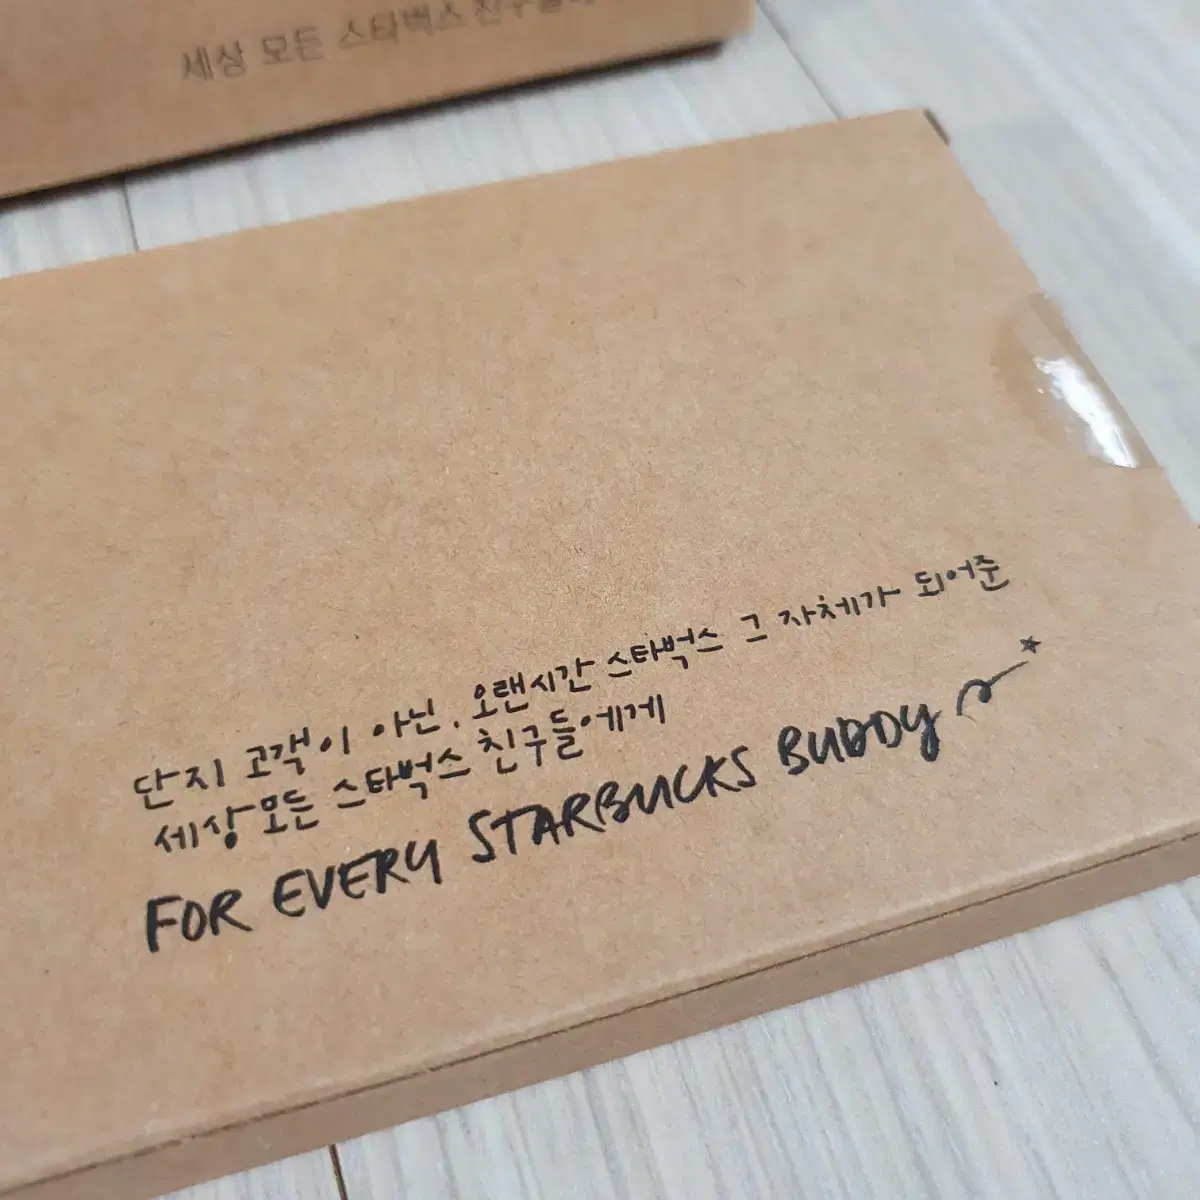 세상 모든 스타벅스 친구들에
단지 고객이 아닌, 오랜시간 스타벅스 그 자체가 되어준
세상 모든 스타벅스 친구들에게
FOR EVERY STARBUCKS BUDDY